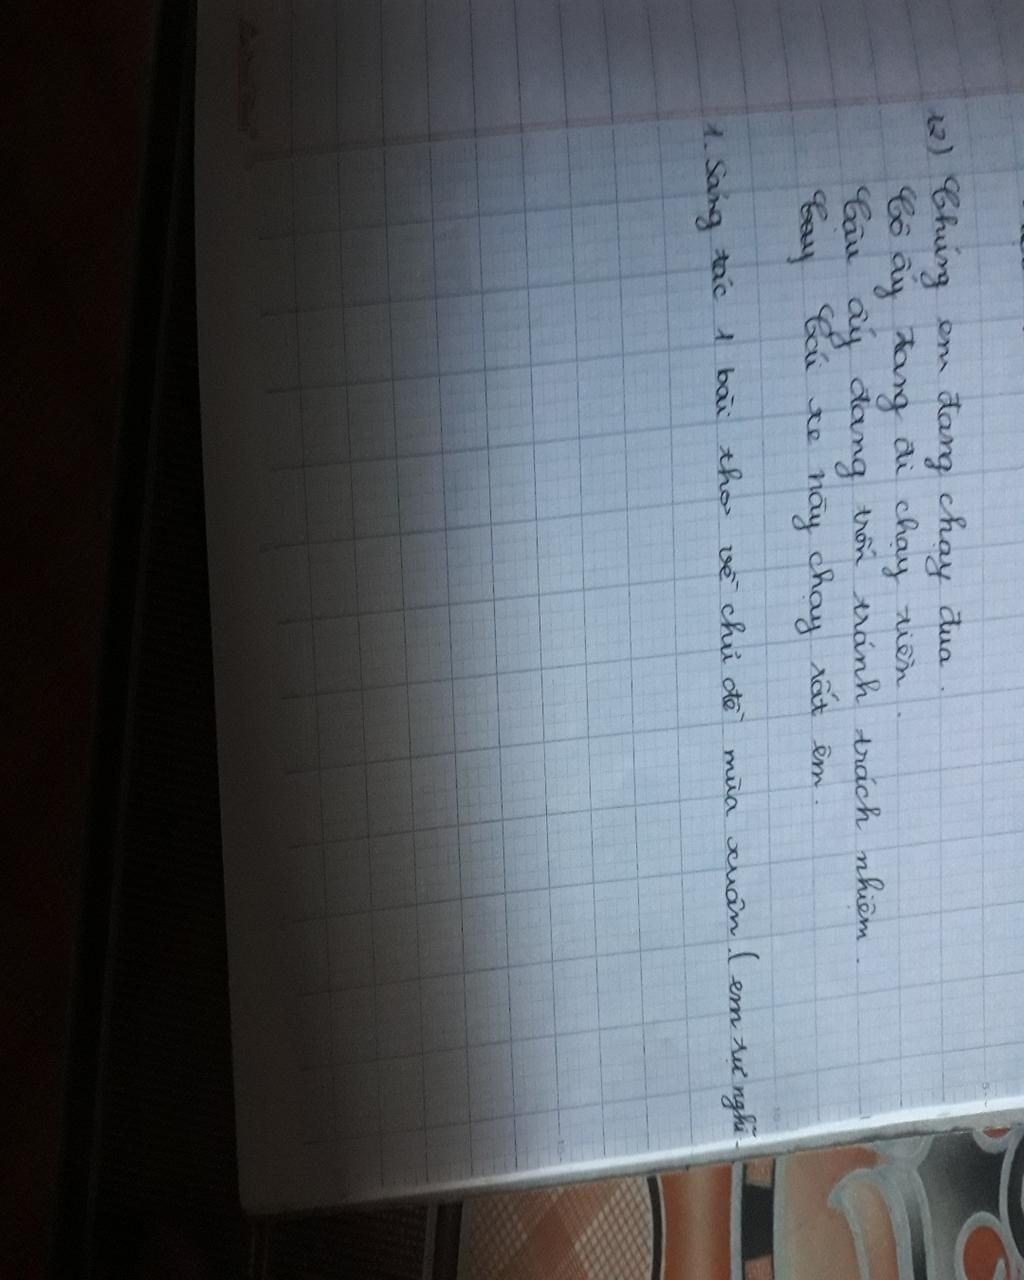 12) Chúng em đang chạy đua.
Cô ấy đang đi chạy tiền.
Cậu ấy đang trốn tránh trách nhiệm.
Cái xe này chạy rất êm.
1. Sáng tác 1 bài thơ về chủ đề mùa xuân. (em tự nghĩ